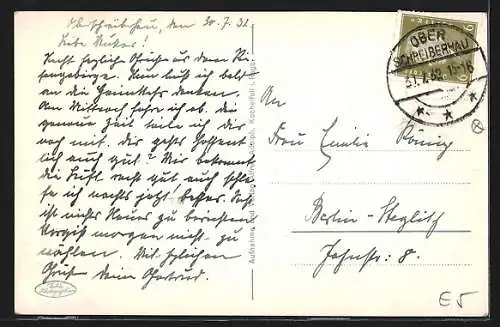 Oberschreiberhau, den 30.7.32
Liebe Mutter!
Recht herzliche Grüsse aus dem Rie-
sengebirge. Nun heisst es bald
an die Heimkehr denken.
Am Mittwoch fahre ich ab. Die
genaue Zeit teile ich dir
noch mit. Dir geht's hoffent-
lich auch gut? Mir bekommt
die Luft recht gut auch schla-
fe ich nachts jetzt besser. Sonst
ist nichts Neues zu berichten
morgen nicht zu
wählen. Mit herzlichen
Grüssen deine Gertrud.
OBER
SCHREIBERHAU
31.7.32.
An
Frau Emilie König
Berlin-Steglitz
Jahnstr. 8.
E5